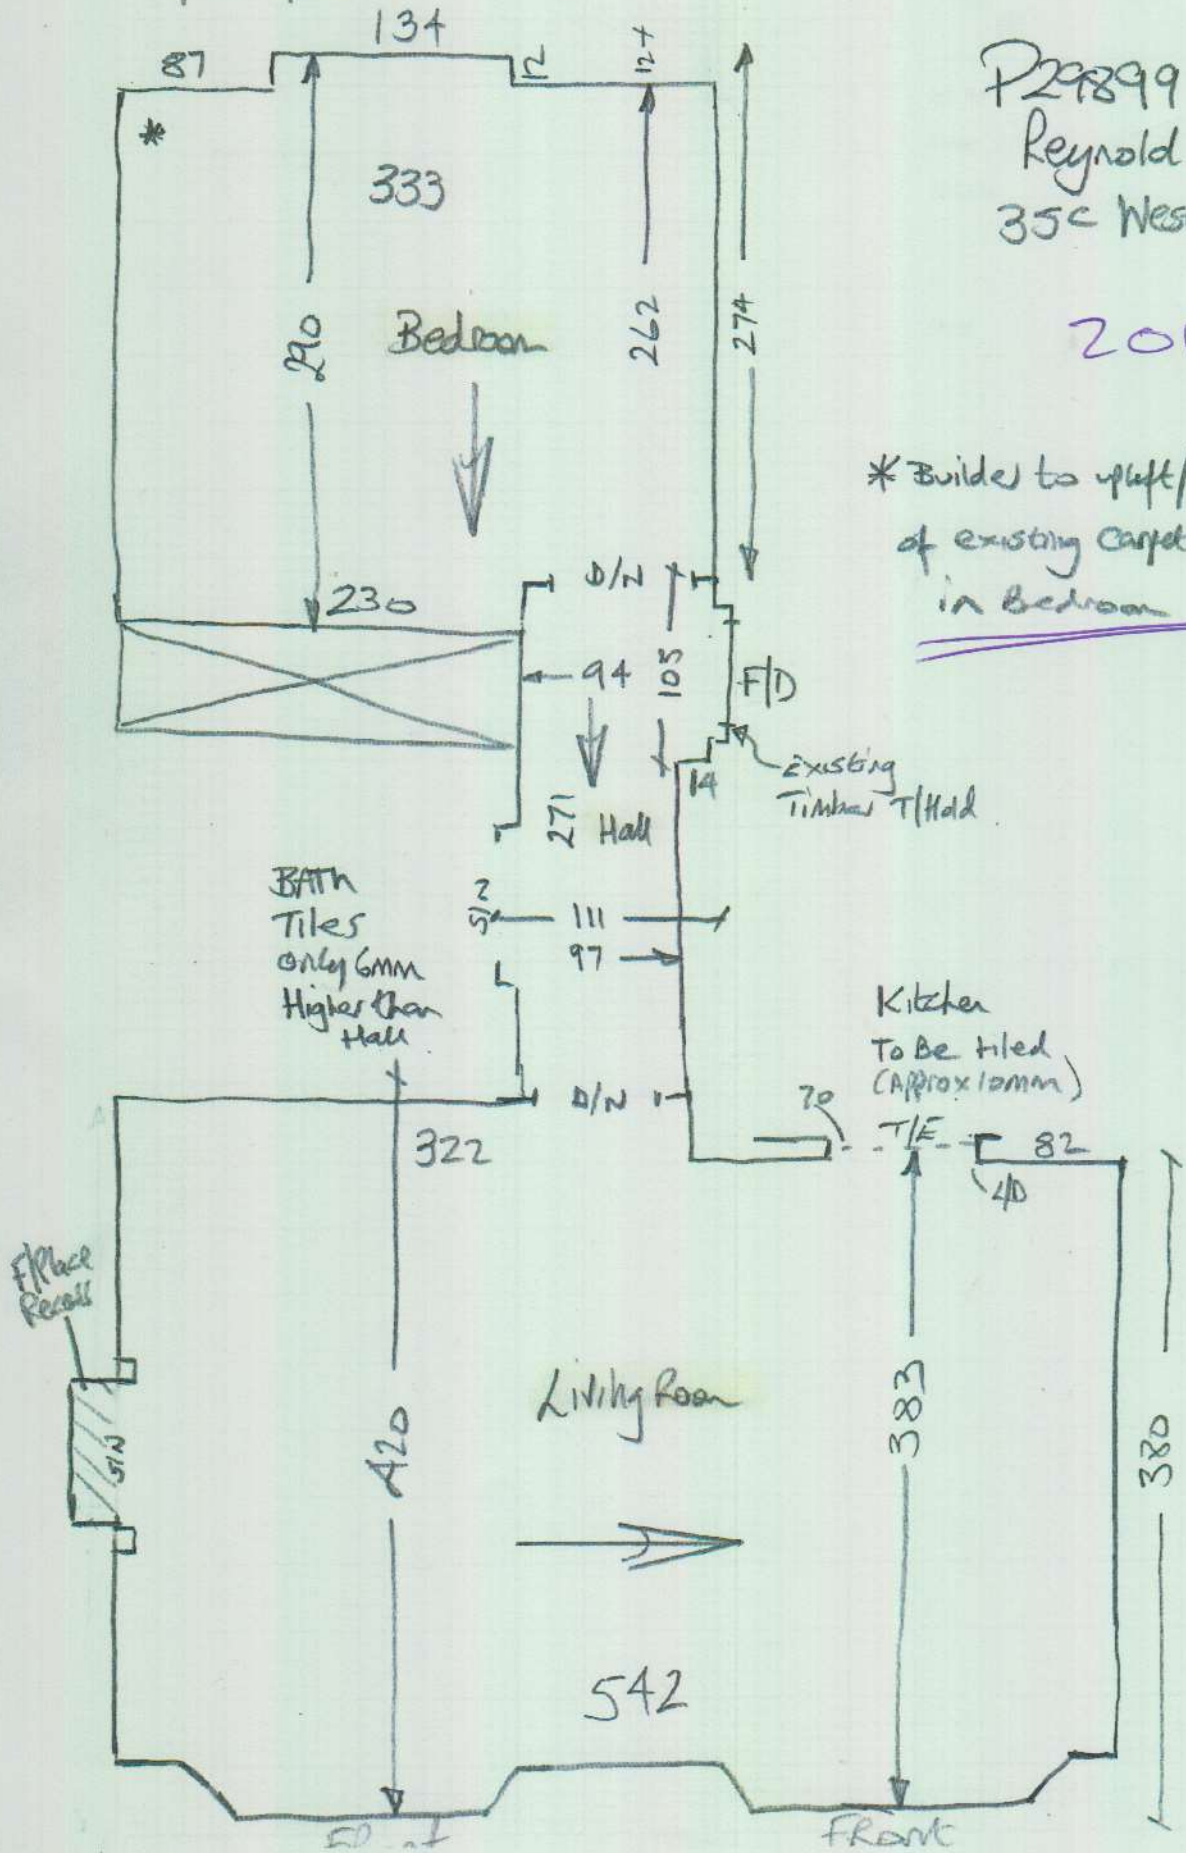 134
87
12
12+
P29899
Reynold
35c Wes
*
333
290
Bedroom
262
274
* Builder to uplift/
of existing Carpet
in Bedroom
D/N
230
94
103
F/D
14
Existing
Timber T/Hold
271
Hall
BATH
Tiles
only 6mm
Higher than
Hall
111
97
Kitchen
To Be tiled
(Approx 10mm)
D/N
70
T/E
82
322
L/D
F/Place
Recess
Living Room
420
383
380
542
Front
FRont